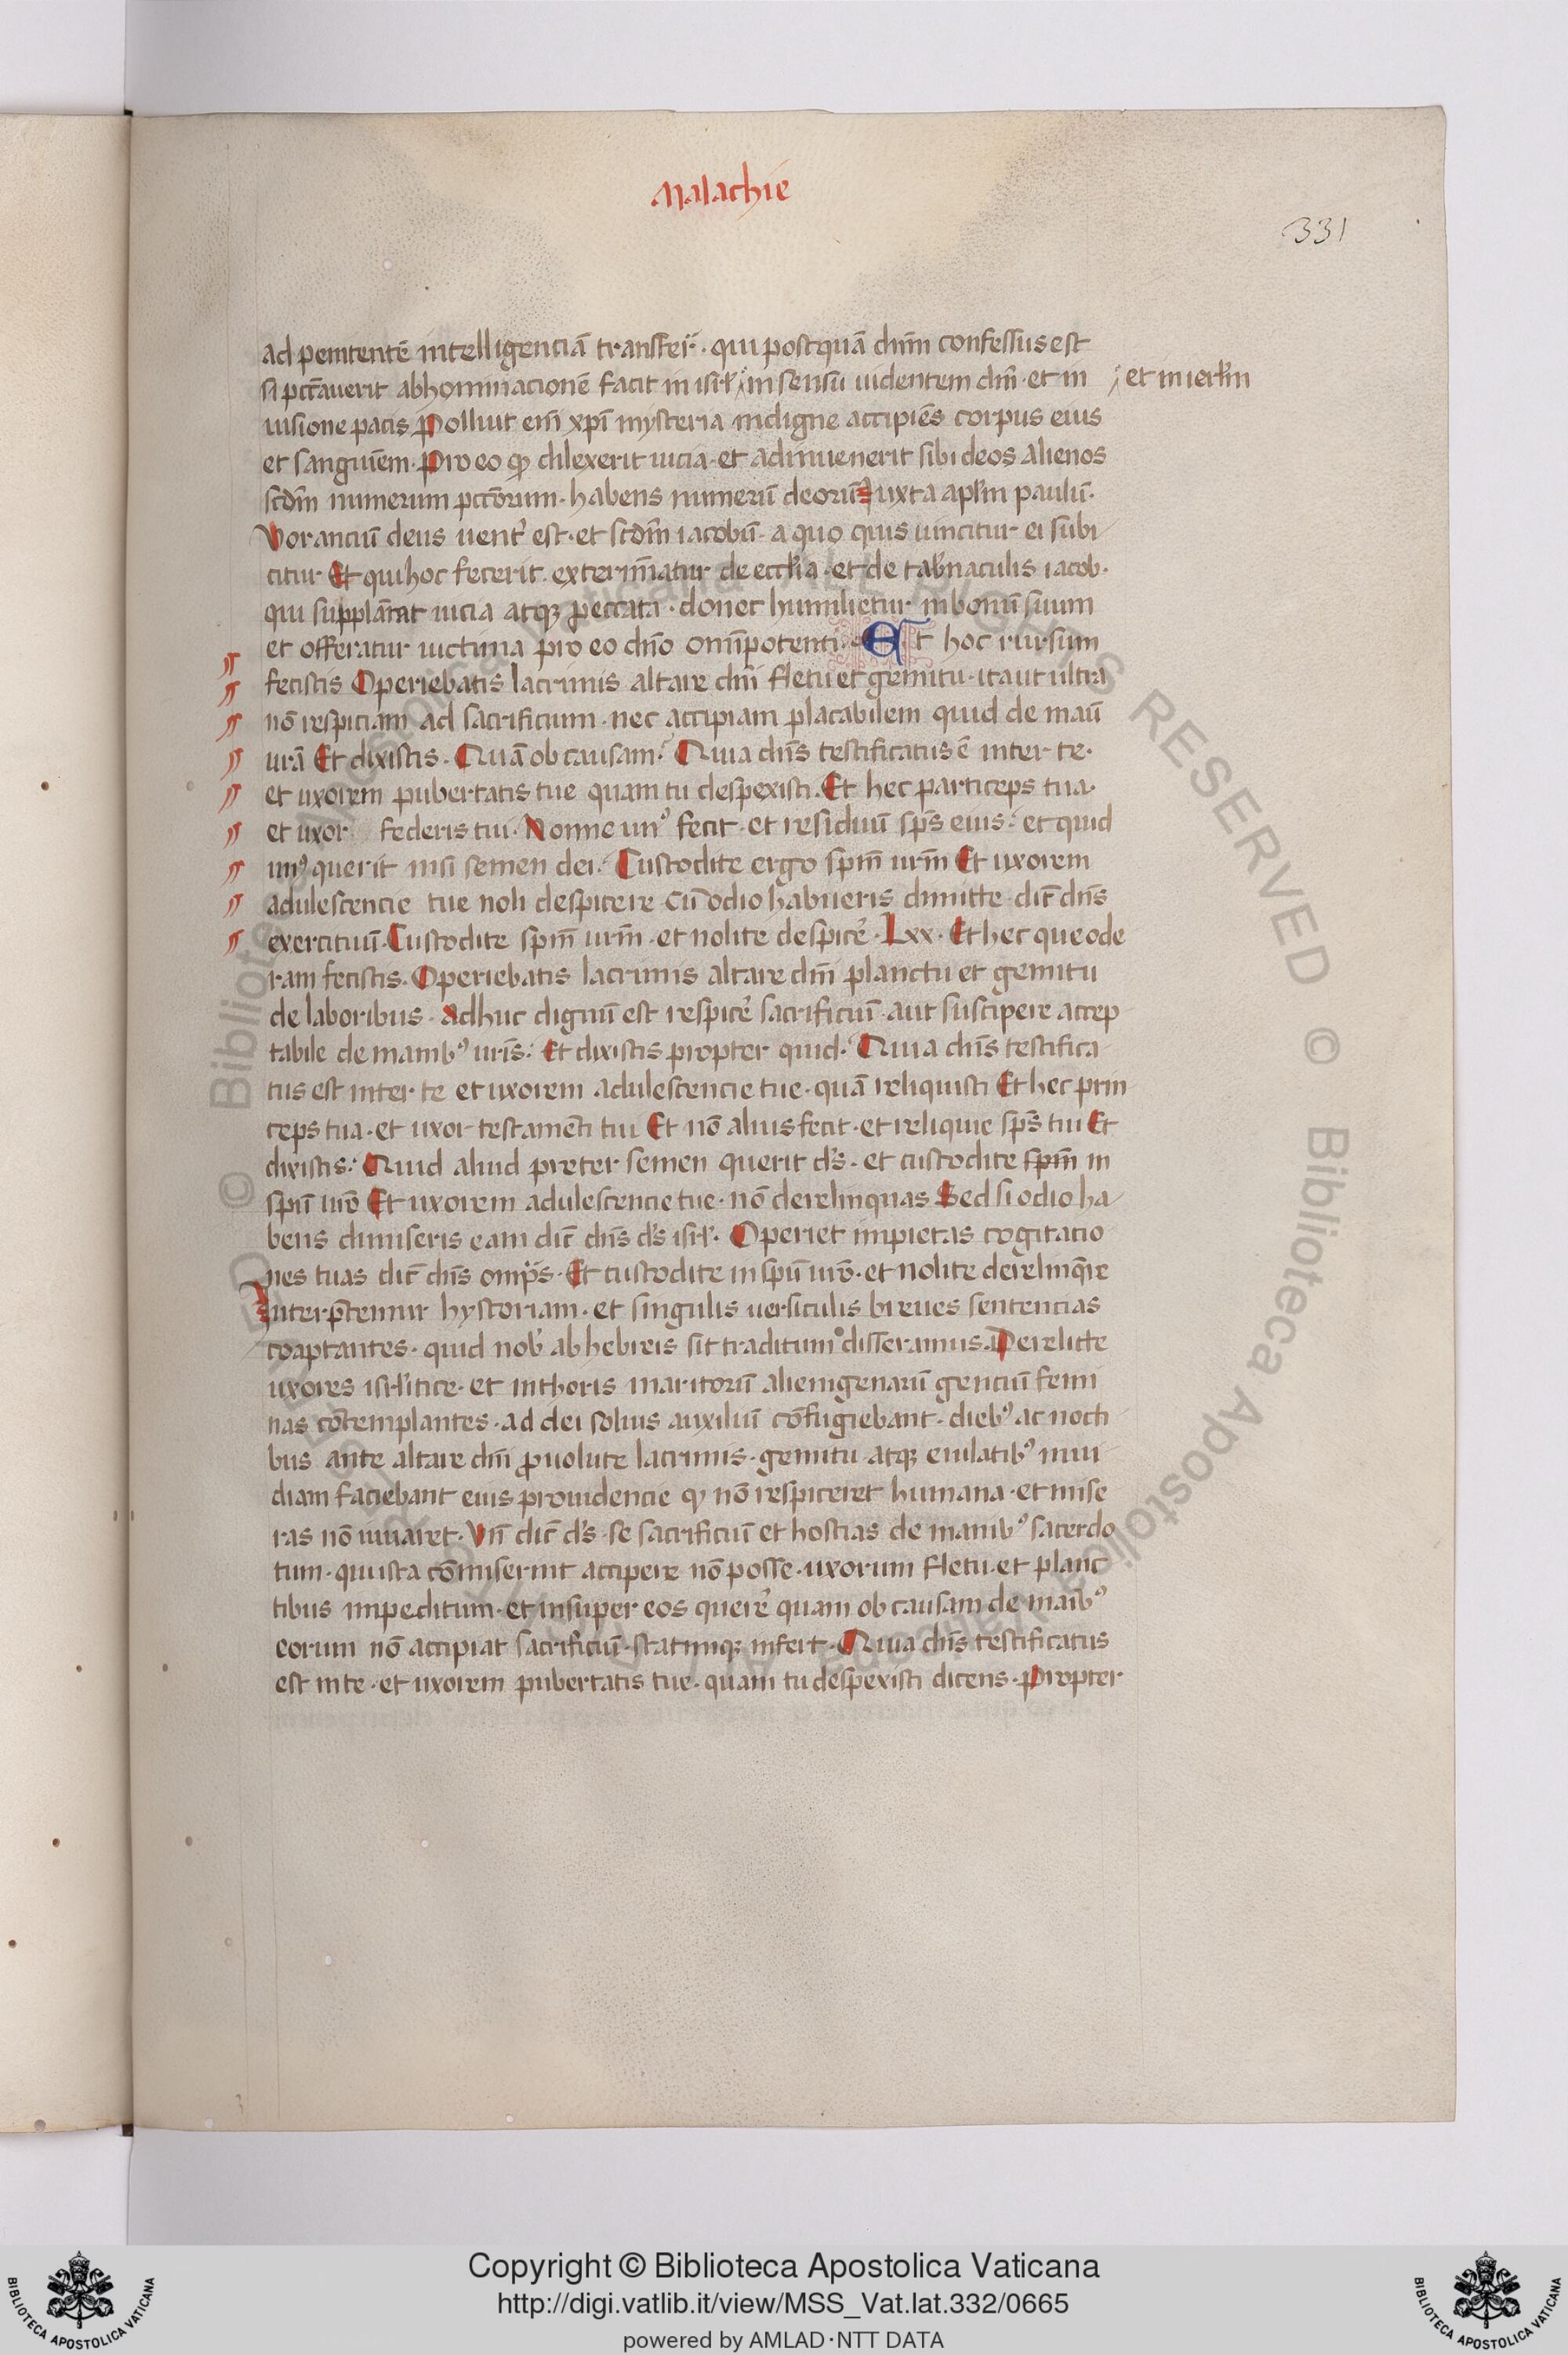 Malachie
331
ad penitentē intelligenciā transferr̄. qui postquā dnm̄ confessus est
si pctāuerit abhominacionē facit in isrl̄ in sensu uidentem dm̄. et in
et in ierlm̄
uisione pacis Polluit em̄ xp̄i mysteria indigne accipiēs corpus eius
et sanguiēm. Pro eo qd̄ dilexerit uicia. et adinuenerit sibi deos alienos
scdm̄ numerum pctōrum. habens numerū deorū Iuxta aplm̄ paulū.
Voranciū deus uent̓ est. et scdm̄ iacobū. a quo quis uincitur ei subi
citur Et qui hoc fecerit. extermīatur de eccl̄ia. et de tab̓naculis iacob.
qui supplātat uicia atqꝫ peccata. donec humilietur in bonū suum
et offeratur uictima pro eo dn̄o om̄ipotenti. Et hoc rursum
fecistis Operiebatis lacrimis altare dn̄i fletu et gemitu. ita ut ultra
nō respiciam ad sacrificium. nec accipiam placabilem quid de manū
ur̄a Et dixistis. Quā ob causam. Quia dn̄s testificatus ē inter te.
et uxorem pubertatis tue quam tu despexisti. Et hec particeps tua.
et uxor federis tui. Nonne unꝰ fecit. et residuū sp̄s eius. et quid
unꝰ querit nisi semen dei. Custodite ergo sp̄m ur̄m Et uxorem
adulescencie tue noli despicere Cū odio habueris dimitte dic̄ dn̄s
exercituū. Custodite sp̄m ur̄m. et nolite despicer̓. Lxx. Et hec que ode
ram fecistis. Operiebatis lacrimis altare dn̄i planctu et gemitu
de laboribus. Adhuc dignū est respicer̓ sacrificiū. aut suscipere accep
tabile de manibꝰ ur̄is. Et dixistis propter quid. Quia dn̄s testifica
tus est inter te et uxorem adulescencie tue. quā reliquisti Et hec prin
ceps tua. et uxor testamenti tui Et nō alius fecit. et reliquie sp̄s tui Et
dixistis. Quid aliud preter semen querit ds̄. et custodite sp̄m in
sp̄u ur̄o Et uxorem adulescencie tue. nō derelinquas Sed si odio ha
bens dimiseris eam dic̄ dn̄s ds̄ isrl̄. Operiet impietas cogitacio
nes tuas dic̄ dn̄s omp̄s. Et custodite in sp̄u ur̄o. et nolite derelinq̄re
Interp̄temur hystoriam. et singulis uersiculis breues sentencias
coaptantes. quid nob̓ ab hebreis sit traditum disseramus. Derelicte
uxores isrl̄itice. et in thoris maritorū alienigenarū genciū femi
nas cōtemplantes. ad dei solius auxiliū cōfugiebant. diebꝰ ac nocti
bus ante altare dn̄i ꝓuolute lacrimis. gemitu atqꝫ eiulatibꝰ inui
diam faciebant eius prouidencie qd̄ nō respiceret humana. et mise
ras nō iuuaret. Vn̄ dic̄ ds̄. se sacrificiū et hostias de manibꝰ sacerdo
tum. qui ista cōmiserint accipere nō posse. uxorum fletu. et planc
tibus impeditum. et insuper eos querer̓ quam ob causam de maībꝰ
eorum nō accipiat sacrificiū. statimqꝫ infert. Quia dn̄s testificatus
est in te. et uxorem pubertatis tue. quam tu despexisti dicens. Propter
Copyright © Biblioteca Apostolica Vaticana
http://digi.vatlib.it/view/MSS_Vat.lat.332/0665
powered by AMLAD·NTT DATA